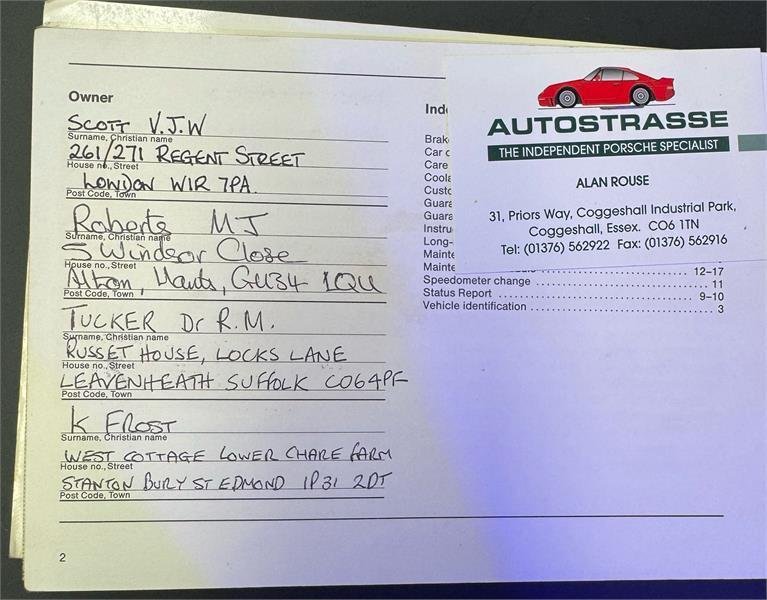 Owner
SCOTT V.J.W
Surname, Christian name
261/271 REGENT STREET
House no., Street
LONDON W1R 7PA.
Post Code, Town
Roberts M J
Surname, Christian name
5 Windsor Close
House no., Street
Alton, Hants, GU34 1QU
Post Code, Town
TUCKER Dr R.M.
Surname, Christian name
RUSSET HOUSE, LOCKS LANE
House no., Street
LEAVENHEATH SUFFOLK CO64PF
Post Code, Town
K FROST
Surname, Christian name
WEST COTTAGE LOWER CHARE FARM
House no., Street
STANTON BURY ST EDMOND IP31 2DT
Post Code, Town
2
Ind
Brak
Car c
Care
Coola
Custo
Guara
Guara
Instru
Long-
Mainte
Mainte 12–17
Speedometer change 11
Status Report 9–10
Vehicle identification 3
AUTOSTRASSE
THE INDEPENDENT PORSCHE SPECIALIST
ALAN ROUSE
31, Priors Way, Coggeshall Industrial Park,
Coggeshall, Essex. CO6 1TN
Tel: (01376) 562922 Fax: (01376) 562916